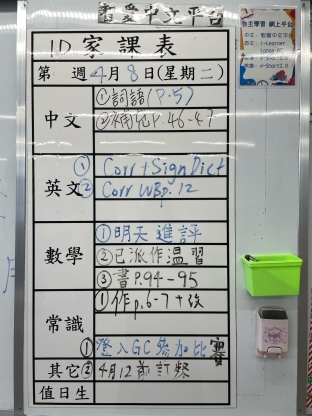 智愛中文平台
1D家課表
第 週4月8日(星期二)
中文
①詞語(P.5)
②補充P.46-47
英文
① Corr + Sign Dict
② Corr WBp.12
數學
①明天進評
②已派作溫習
③書P.94-95
常識
①作p.6-7+改
其它
①登入GC參加比賽
②4月12前訂餐
值日生
自主學習 網上平台
中文: 智愛中文平台
英文: i-Learner